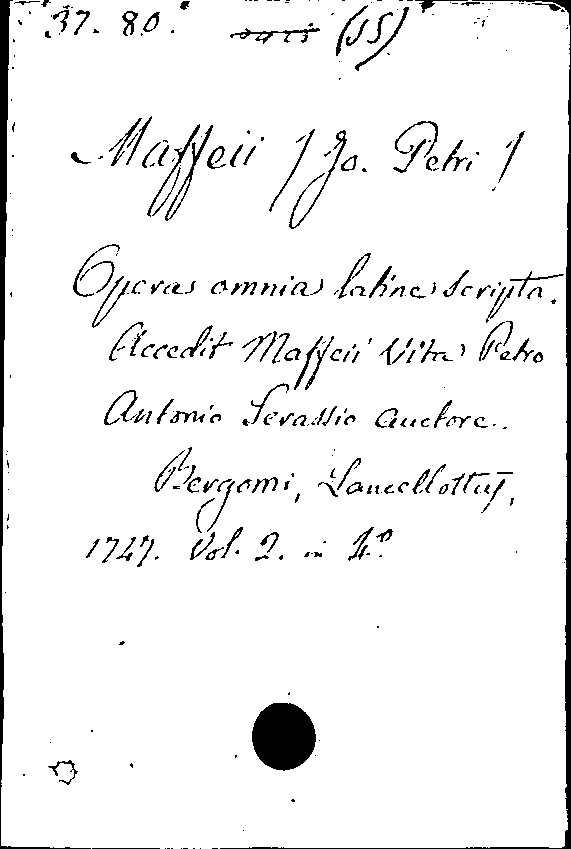 37. 80. (SS)
Maffeii / Jo. Petri /
Opera omnia latine scripta.
Accedit Maffeii Vita Petro
Antonio Serassio auctore.
Bergomi, Lancellottus,
1747. Vol. 2. in 4º.